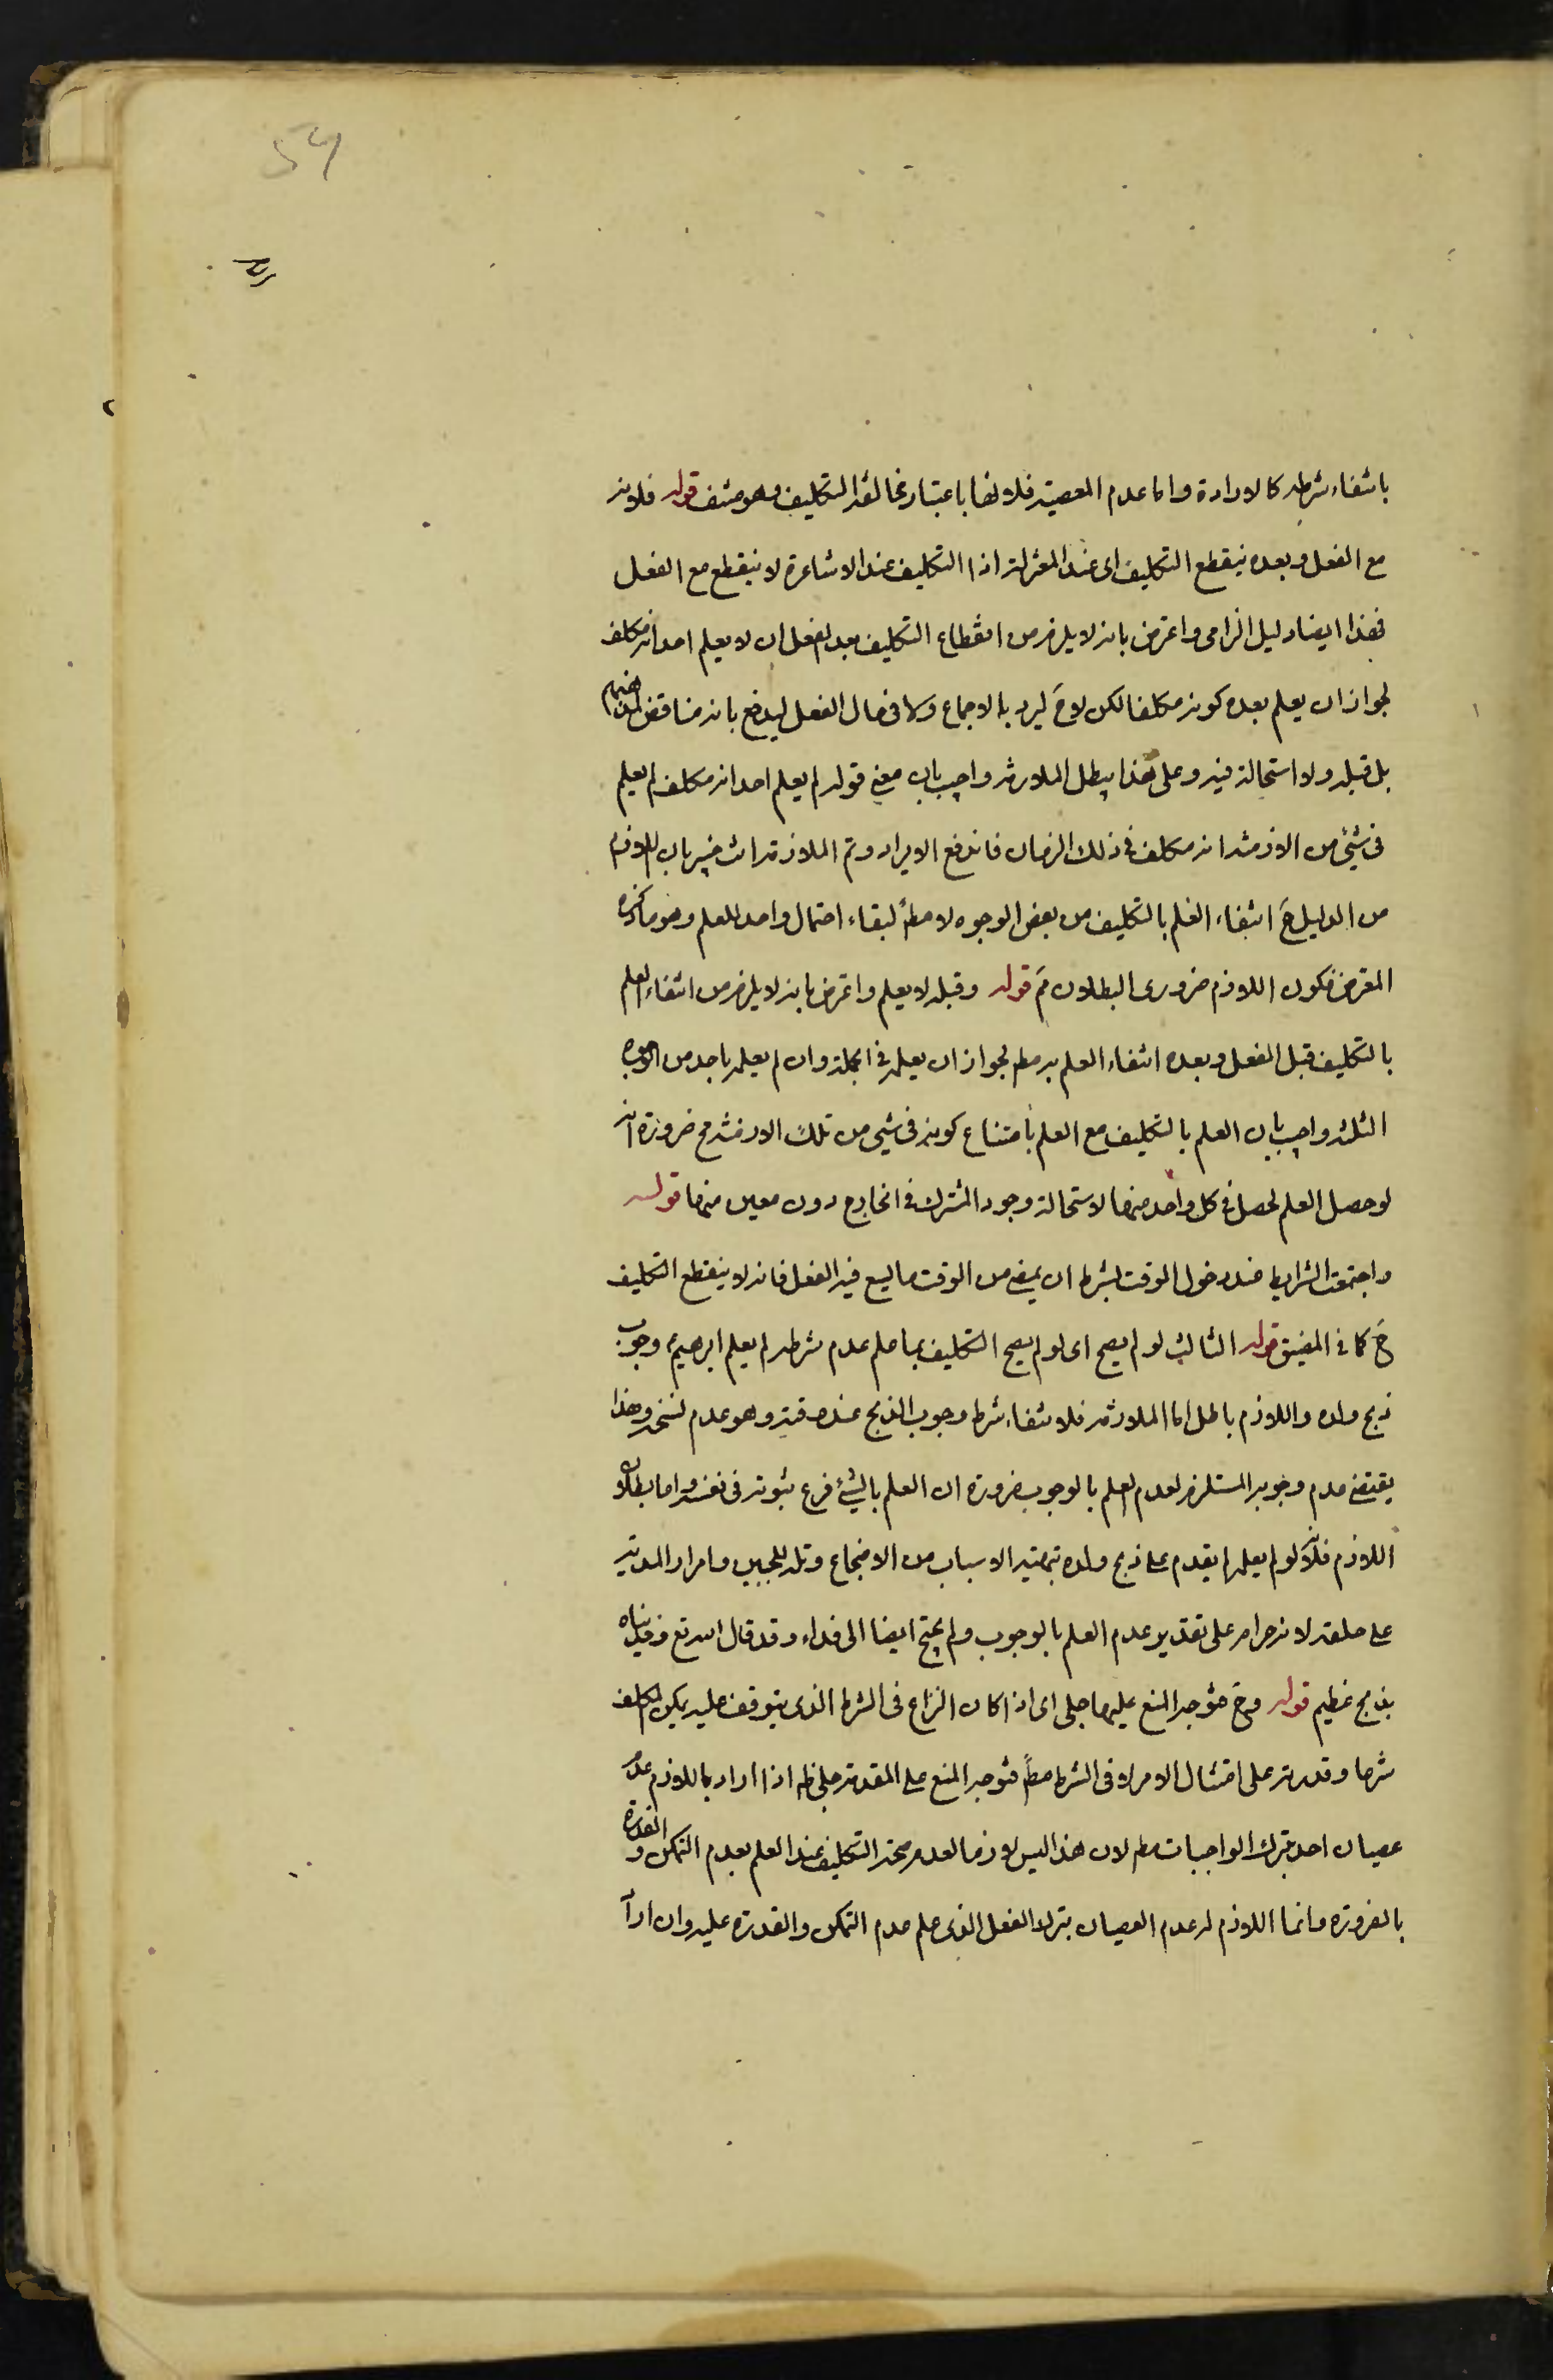 54
بانتفاء شرطه كالارادة واما عدم المعصية فلانها باعتبار مخالفة التكليف وهو منتف قوله فلانه
مع الفعل وبعده ينقطع التكليف اى عند المعتزلة اذ التكليف عند الاشاعرة لا ينقطع مع الفعل
فهذا ايضا دليل الزامى واعترض بانه لا يلزم من انقطاع التكليف بعد الفعل ان لا يعلم احد انه مكلف
لجواز ان يعلم بعده كونه مكلفا لكن لا ح ليرد بالاجماع ولا فى حال الفعل ليدفع بانه مناقض
بل قبله ولا استحالة فيه وعلى هذا يبطل الملازمة واجيب بان معنى قوله لم يعلم احد انه مكلف لم يعلم
فى شئ من الازمنة انه مكلف فى ذلك الزمان فاندفع الايراد وتم الملازمة انت خبير بان اللازم
من الدليل ح انتفاء العلم بالتكليف من بعض الوجوه لا مط لبقاء احتمال واحد للعلم وهو ما ذكره
المعترض فكون اللازم ضرورى البطلان مم قوله وقبله لا يعلم واعترض بانه لا يلزم من انتفاء العلم
بالتكليف قبل الفعل وبعده انتفاء العلم به مط لجواز ان يعلم فى الجملة وان لم يعلم باحد من الوجوه
الثلثة واجيب بان العلم بالتكليف مع العلم بامتناع كونه فى شئ من تلك الازمنة مح ضرورة انه
لو حصل العلم لحصل فى كل واحد منها لاستحالة وجود المشترك فى الخارج دون معين منها قوله
واجتمعت الشرايط عند دخول الوقت بشرط ان يمضى من الوقت ما يسع فيه الفعل فانه لا ينقطع التكليف
ح كما فى المضيق قوله الثالث لو لم يصح اى لو لم يصح التكليف بما علم عدم شرطه لم يعلم ابرهيم وجوب
ذبح ولده واللازم باطل اما الملازمة فلانتفاء شرط وجوب الذبح عند وقته وهو عدم نسخه وهذا
يقتضى عدم وجوبه المستلزم لعدم العلم بالوجوب ضرورة ان العلم بالشئ فرع ثبوته فى نفسه واما بطلان
اللازم فلانه لو لم يعلم لم يقدم على ذبح ولده بتهيئة الاسباب من الاضجاع وتله للجبين وامرار المدية
على حلقه لانه حرام على تقدير عدم العلم بالوجوب ولم يحتج ايضا الى فداء وقد قال الله تع وفديناه
بذبح عظيم قوله وح متوجه المنع عليها جلى اى اذا كان النزاع فى الشرط الذى يتوقف عليه تمكن المكلف
شرعا وقدرته على امتثال الامر لا فى الشرط مط فتوجه المنع على المقدمة جلى ظ اذا اراد باللازم عدم
عصيان احد بترك الواجبات مط لان هذا ليس لازما لعدم صحة التكليف عند العلم بعدم التمكن و القدرة
بالضرورة وانما اللازم له عدم العصيان بترك الفعل الذى علم عدم التمكن والقدرة عليه وان اراد